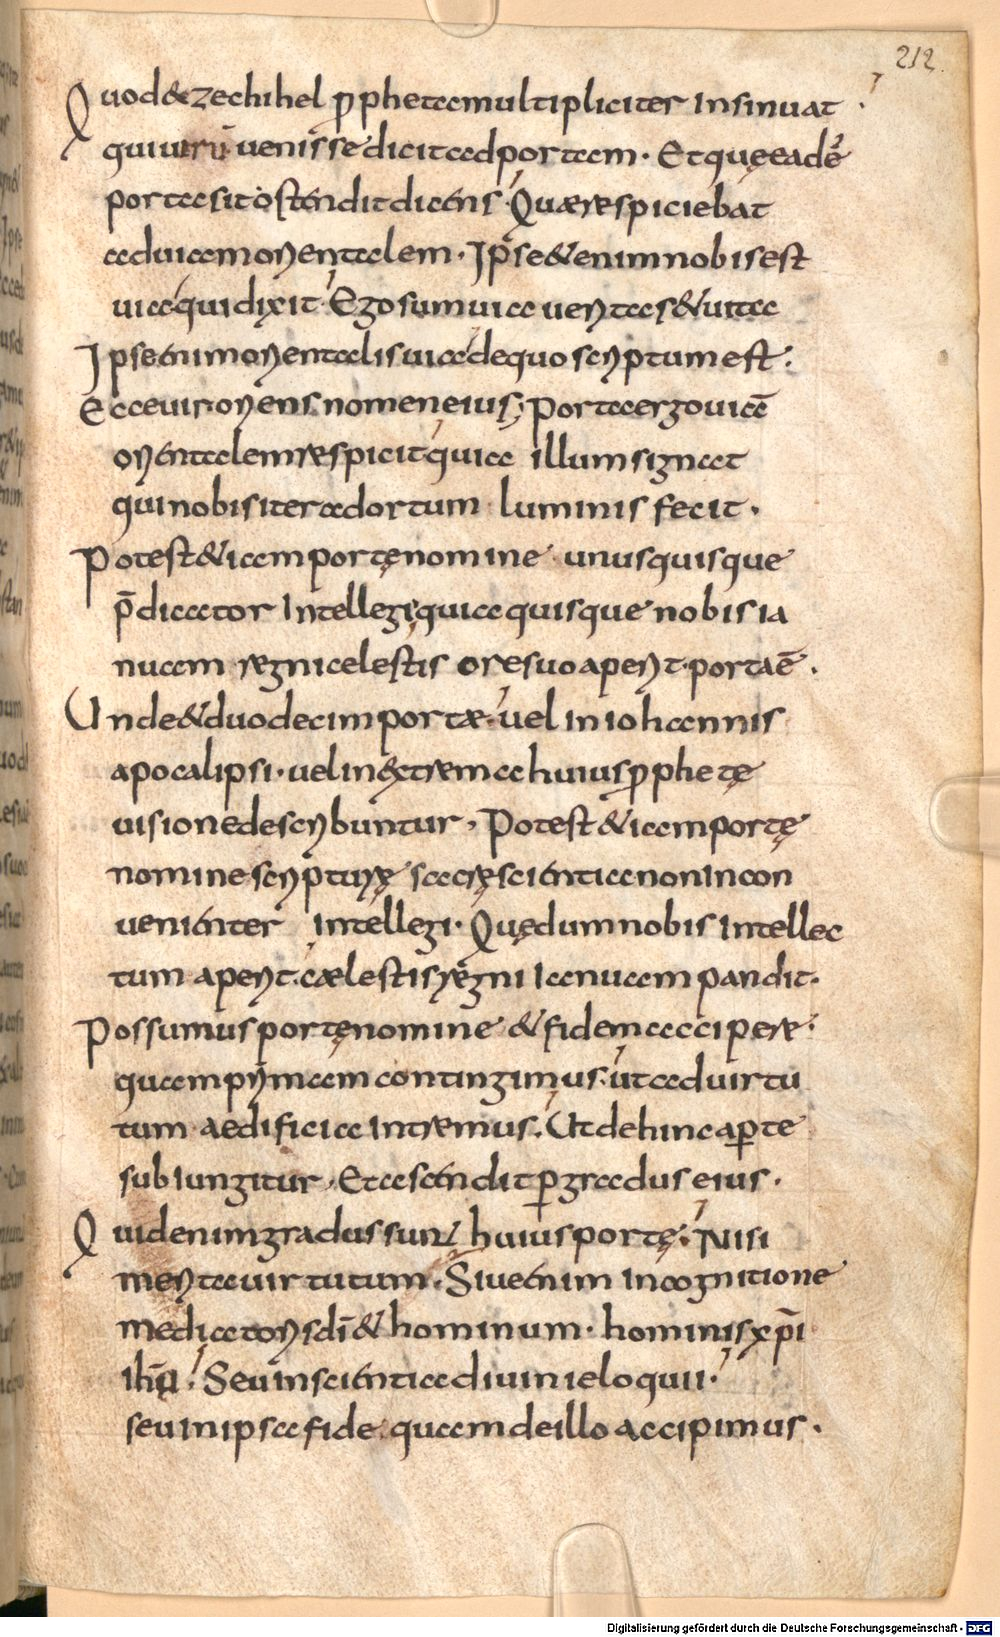 212.
Quod & zechihel ꝓpheta multipliciter insinuat
qui uirū uenisse dicit ad portam. Et quę eadē
porta sit ostendit dicens. Quae respiciebat
ad uiam orientalem. Ipse & enim nobis est
uia qui dixit. Ego sum uia ueritas & uita
Ipse enim orientalis uia de quo scriptum est.
Ecce uir oriens nomen eius; Porta ergo uiā
orientalem respicit quia illum signat
qui nobis iter ad ortum luminis fecit.
Potest & iam portę nomine unusquisque
p̄dicator intellegi quia quisque nobis ia
nuam regni celestis ore suo aperit portaē.
Unde & duodecim portae uel in iohannis
apocalipsi. uel in extrema huius ꝓphetę
uisione describuntur. Potest & iam portę
nomine scripturę sacrę scientia non incon
uenienter intellegi. Quę dum nobis intellec
tum aperit. caelestis regni ianuam pandit.
Possumus portę nomine & fidem accipere.
quam primam contingimus. ut ad uirtu
tum aedificia intremus. Ut dehinc aꝑte
subiungitur. Et ascendit ꝑ gradus eius.
Quid enim gradus sunt huius portę. Nisi
merita uirtutum. Siue enim in cognitione
mediatoris dī & hominum. hominis xp̄i
ihū. Seu in scientia diuini eloquii.
seu in ipsa fide quam de illo accipimus.
Digitalisierung gefördert durch die Deutsche Forschungsgemeinschaft - DFG